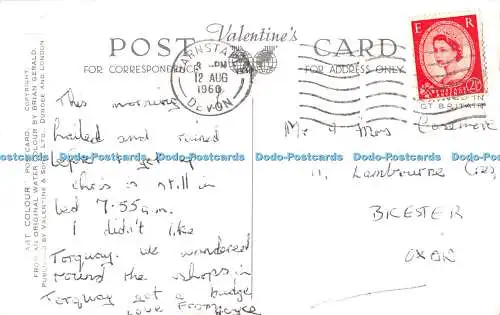 Valentine's
POST CARD
FOR CORRESPONDENCE
FOR ADDRESS ONLY
BARNSTAPLE
3 - PM
12 AUG
1960
DEVON
E R
2½D
PRINTED IN
GT BRITAIN
ART COLOUR POST CARD. COPYRIGHT.
FROM AN ORIGINAL WATER COLOUR BY BRIAN GERALD.
PUBLISHED BY VALENTINE & SONS, LTD. DUNDEE AND LONDON
This morning
hailed and rained
before I get up
chris is still in
bed 7.55 a.m.
I didn't like
Torquay. We wandered
round the shops in
Torquay get a badge
Love From
Mr & Mrs
11, Lambourne
BICESTER
OXON
Dodo-Postcards Dodo-Postcards Dodo-Postcards Dodo-Postcards Dodo-Postcards Dodo-Postcards